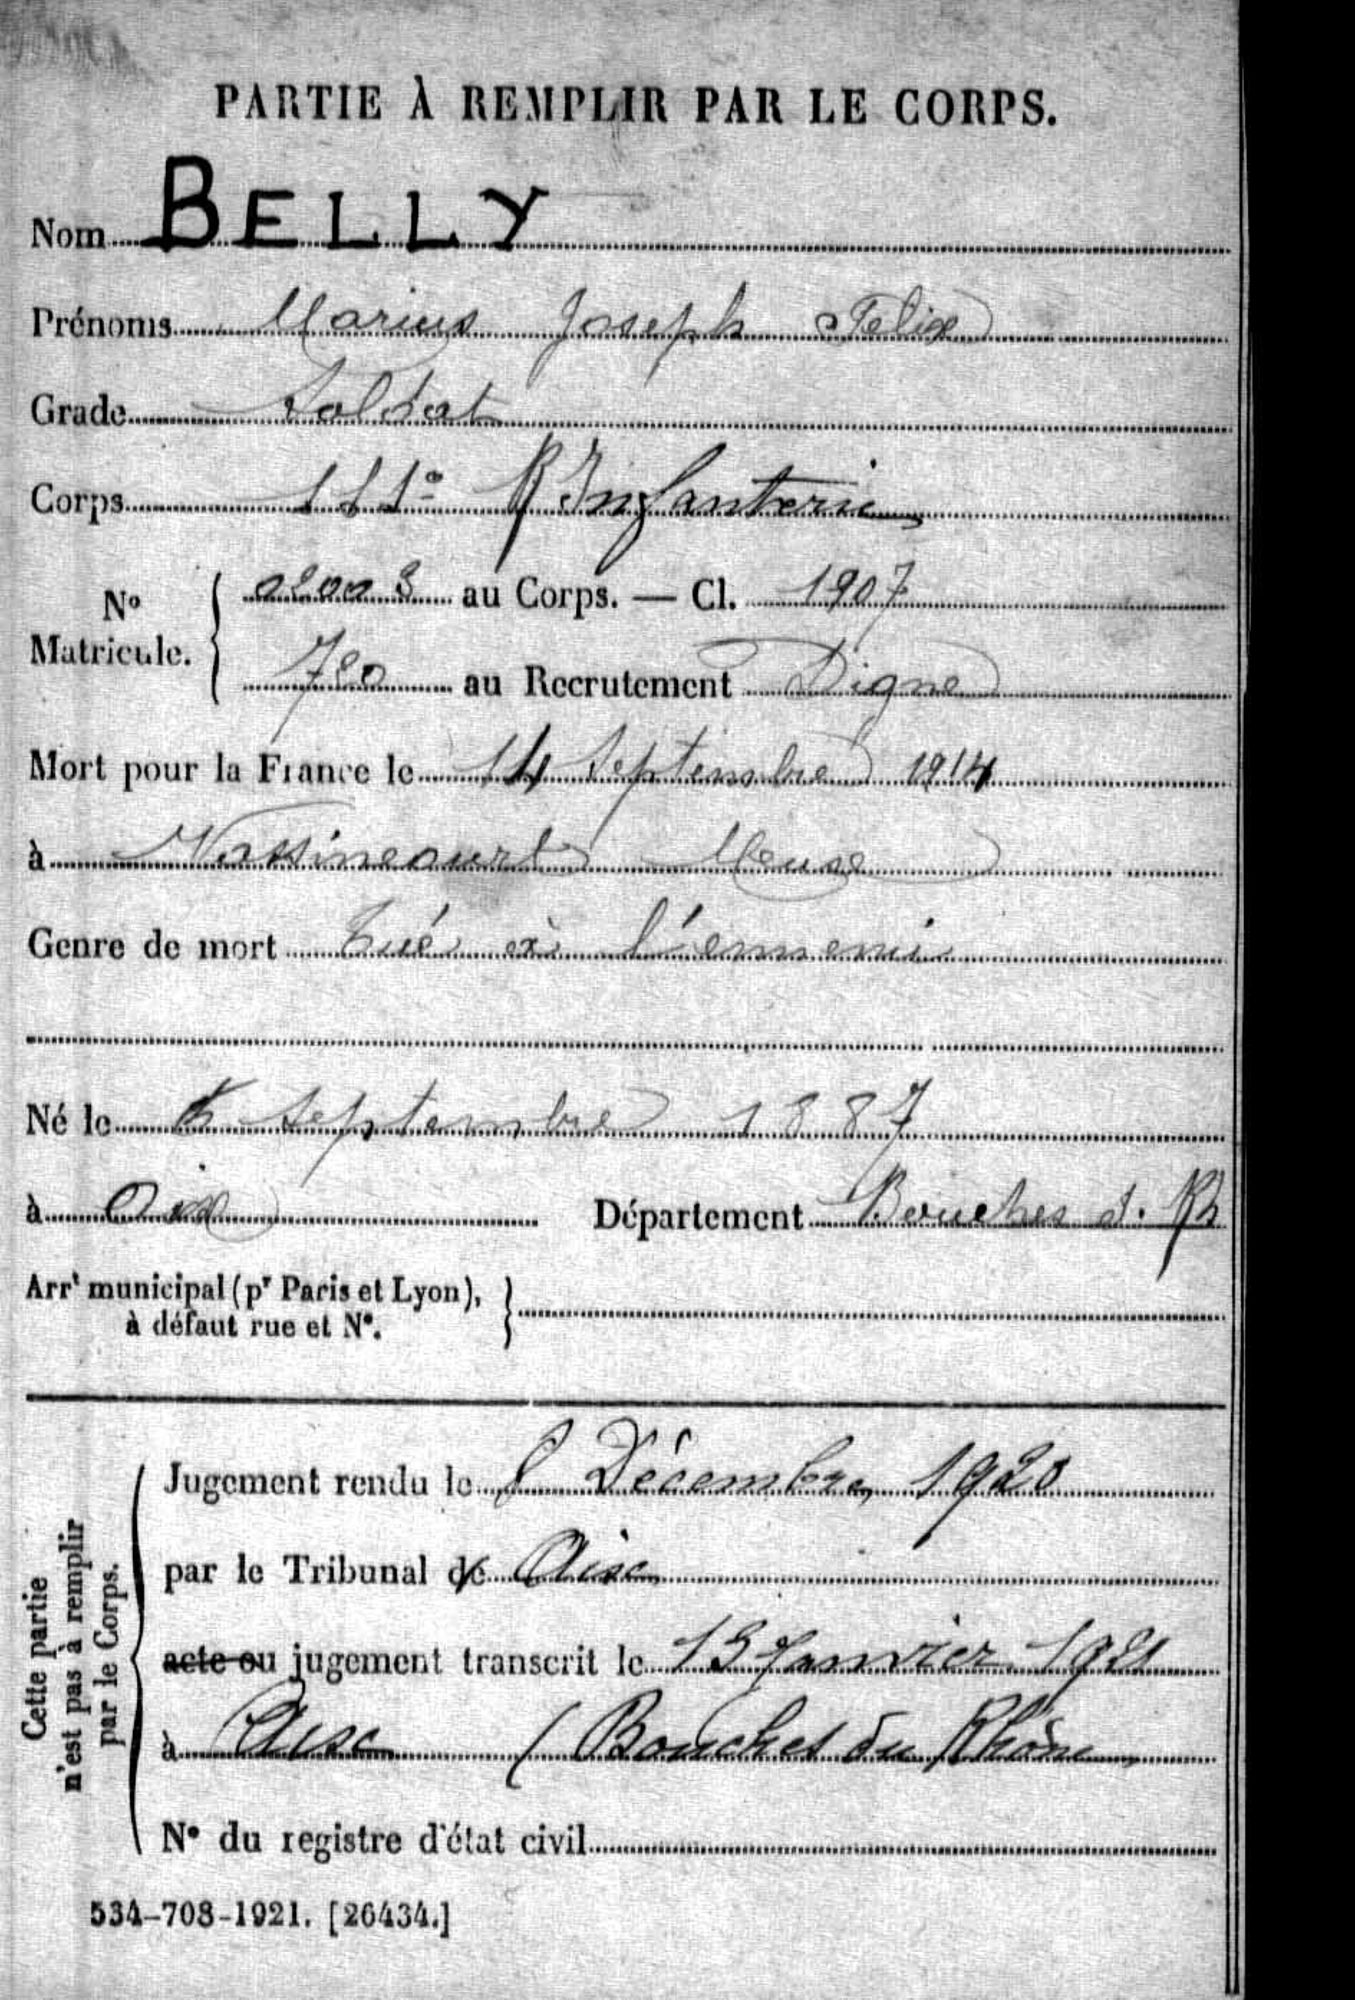 PARTIE À REMPLIR PAR LE CORPS.
Nom BELLY
Prénoms Marius Joseph Felix
Grade Soldat
Corps 111e R Infanterie
No Matricule. 02003 au Corps. — Cl. 1907
780 au Recrutement Digne
Mort pour la France le 14 Septembre 1914
à Vassincourt Meuse
Genre de mort Tué à l'ennemi
Né le Septembre 1887
à Aix Département Bouches d. Rh
Arrt municipal (pr Paris et Lyon),
à défaut rue et No.
Cette partie
n'est pas à remplir
par le Corps.
Jugement rendu le 8 Décembre 1920
par le Tribunal de Aix
acte ou jugement transcrit le 13 Janvier 1921
à Aix (Bouches du Rhône
No du registre d'état civil
534-708-1921. [26434.]